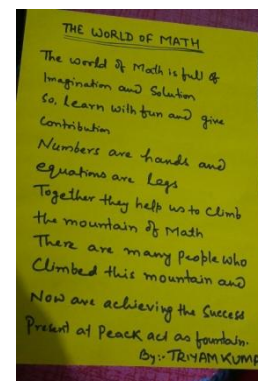 THE WORLD OF MATH
The world of Math is full of
Imagination and Solution
So, Learn with fun and give
Contribution
Numbers are hands and
equations are Legs
Together they help us to Climb
the mountain of Math
There are many People who
Climbed this mountain and
Now are achieving the Success
Present at Peack act as fountain.
By:- TRIYAM KUMA